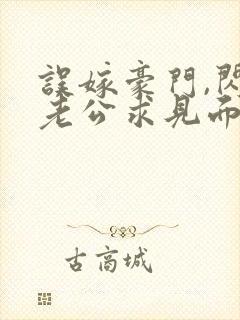 誤嫁豪門,閃
老公求見面
古高城